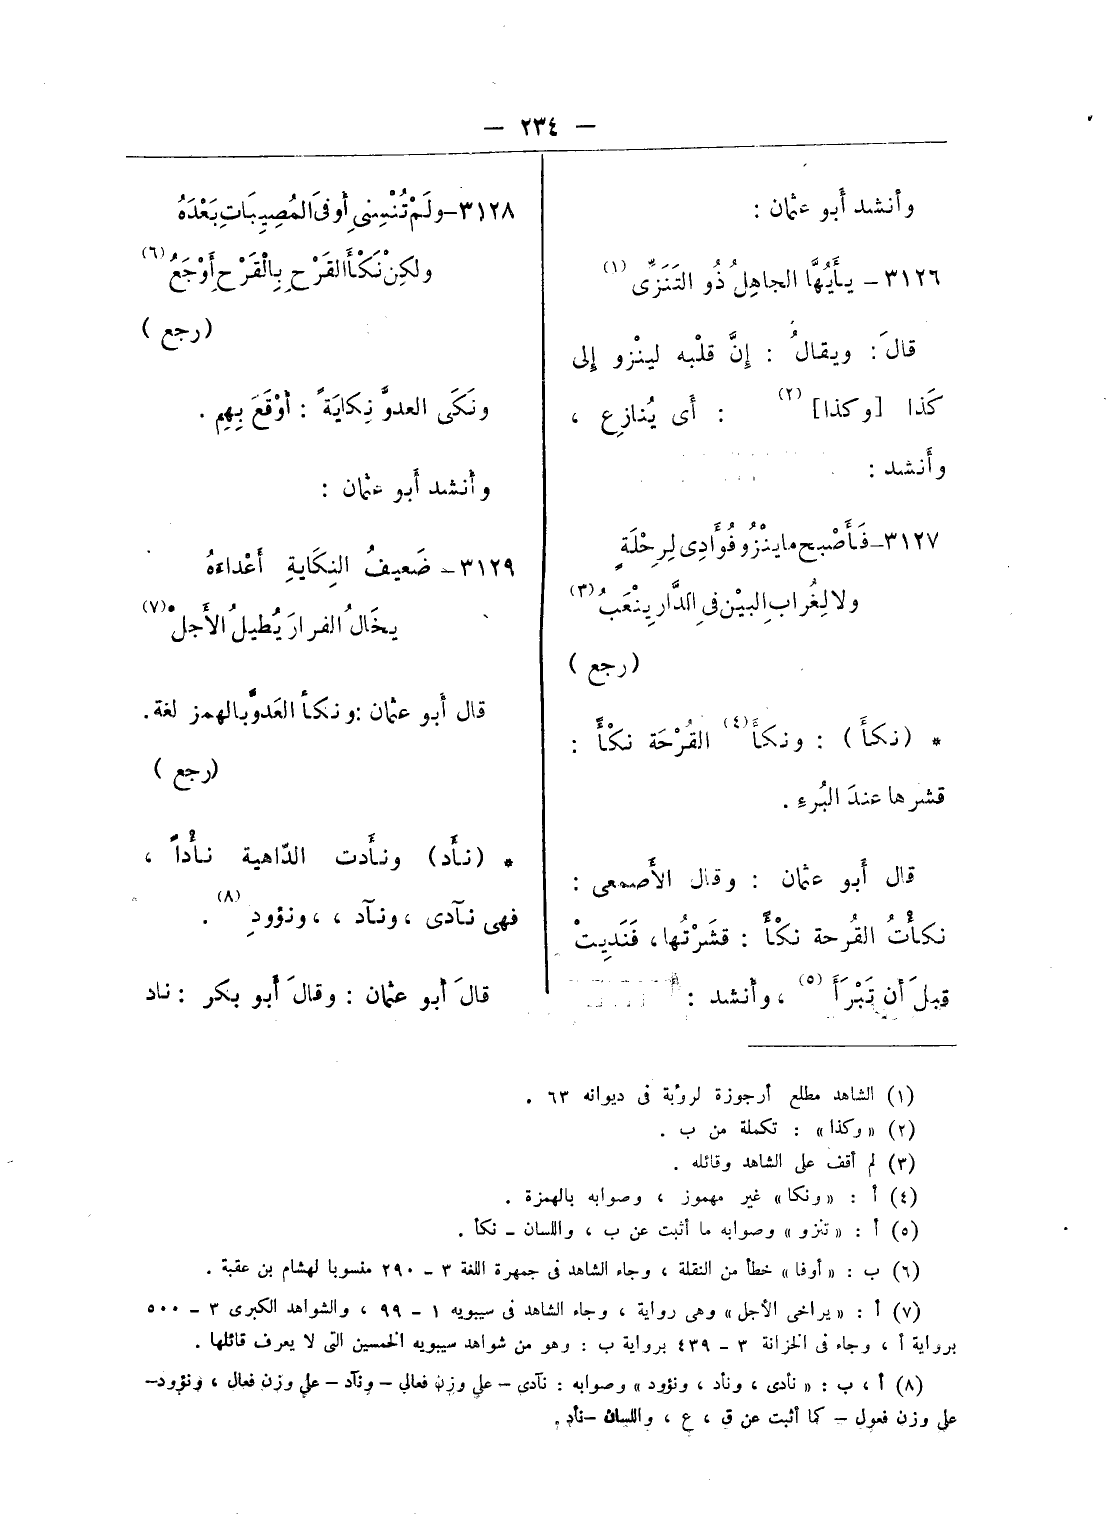 — ٢٣٤ —
وأنشد أبو عثمان :
٣١٢٦ – يأَيُّهَا الجاهِلُ ذُو التَنَزِّى (١)
قالَ : ويقالُ : إنَّ قلْبه لينْزو إلى
كَذا [وكذا] (٢) : أَى يُنازِع ،
وأَنشد :
٣١٢٧–فَأَصْبح ما ينْزُو فُوَّادِى لِرِحْلَةٍ
ولا لِغُرابِ البيْن فى الدَّارِ ينْعَبُ (٣)
(رجع)
* (نكأَ) : ونكأَ (٤) القُرْحَة نكْأً :
قشرها عندَ البُرءِ .
قال أَبو عثمان : وقال الأَصمعى :
نكأْتُ القُرحة نكْأً : قشَرْتُها ، فَنَديتْ
قبلَ أن تَبْرَأَ (٥) ، وأنشد :
٣١٢٨–ولَمْ تُنْسِنِى أوفَى المُصِيبَاتِ بَعْدَهُ
ولكِنْ نَكْأَ القَرْحِ بِالْقَرْحِ أَوْجَعُ (٦)
(رجع)
ونَكَى العدوَّ نِكايَةً : أَوْقَعَ بِهِم .
وأَنشد أَبو عثمان :
٣١٢٩ – ضَعيفُ النِكَايةِ أَعْداءَهُ
يخَالُ الفرارَ يُطيلُ الأَجلْ (٧)
قال أَبو عثمان : ونكأ العَدوَّ بالهمز لغة .
(رجع)
* (نأَد) ونأَدت الدّاهية نأْداً ،
فهى نآدى ، ونآد ، ، ونؤودِ (٨) .
قالَ أَبو عثمان : وقالَ أَبو بكر : ناد
(١) الشاهد مطلع أرجوزة لرؤبة فى ديوانه ٦٣ .
(٢) « وكذا » : تكملة من ب .
(٣) لم أقف على الشاهد وقائله .
(٤) أ : « ونكا » غير مهموز ، وصوابه بالهمزة .
(٥) أ : « تنزو » وصوابه ما أثبت عن ب ، واللسان – نكأ .
(٦) ب : « أوفا » خطأ من النقلة ، وجاء الشاهد فى جمهرة اللغة ٣ – ٢٩٠ منسوبا لهشام بن عقبة .
(٧) أ : « يراخى الأجل » وهى رواية ، وجاء الشاهد فى سيبويه ١ – ٩٩ ، والشواهد الكبرى ٣ – ٥٠٠
برواية أ ، وجاء فى الخزانة ٣ – ٤٣٩ برواية ب : وهو من شواهد سيبويه الخمسين التى لا يعرف قائلها .
(٨) أ ، ب : « نأدى ، ونأد ، ونؤود » وصوابه : نآدى – على وزن فعالى – ونآد – على وزن فعال ، ونؤود–
على وزن فعول – كما أثبت عن ق ، ع ، واللسان –نأد .